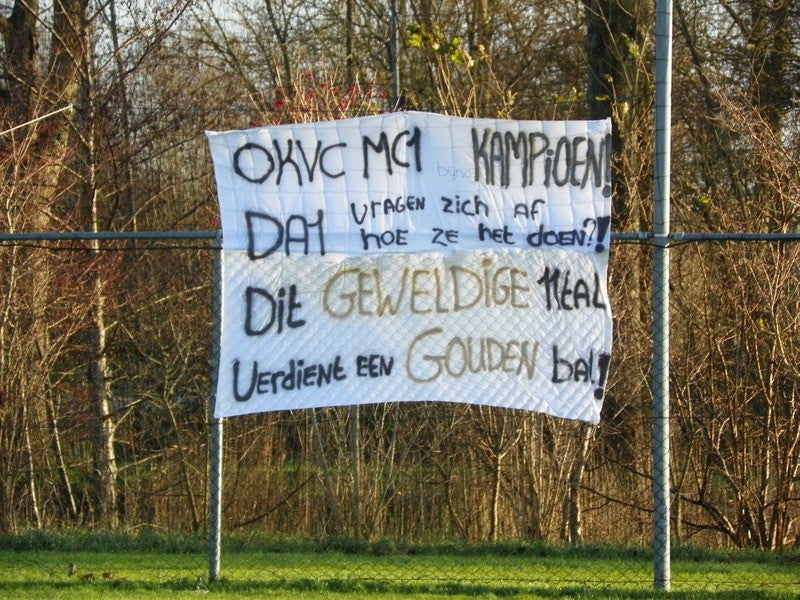 OKVC MC1 byna KAMPiOEN!
DA1 VRAGEN ZICH AF
HOE ZE HET DOEN?!
Dit GEWELDiGE 11tAL
VERDiENT EEN GOUDEN bAL!